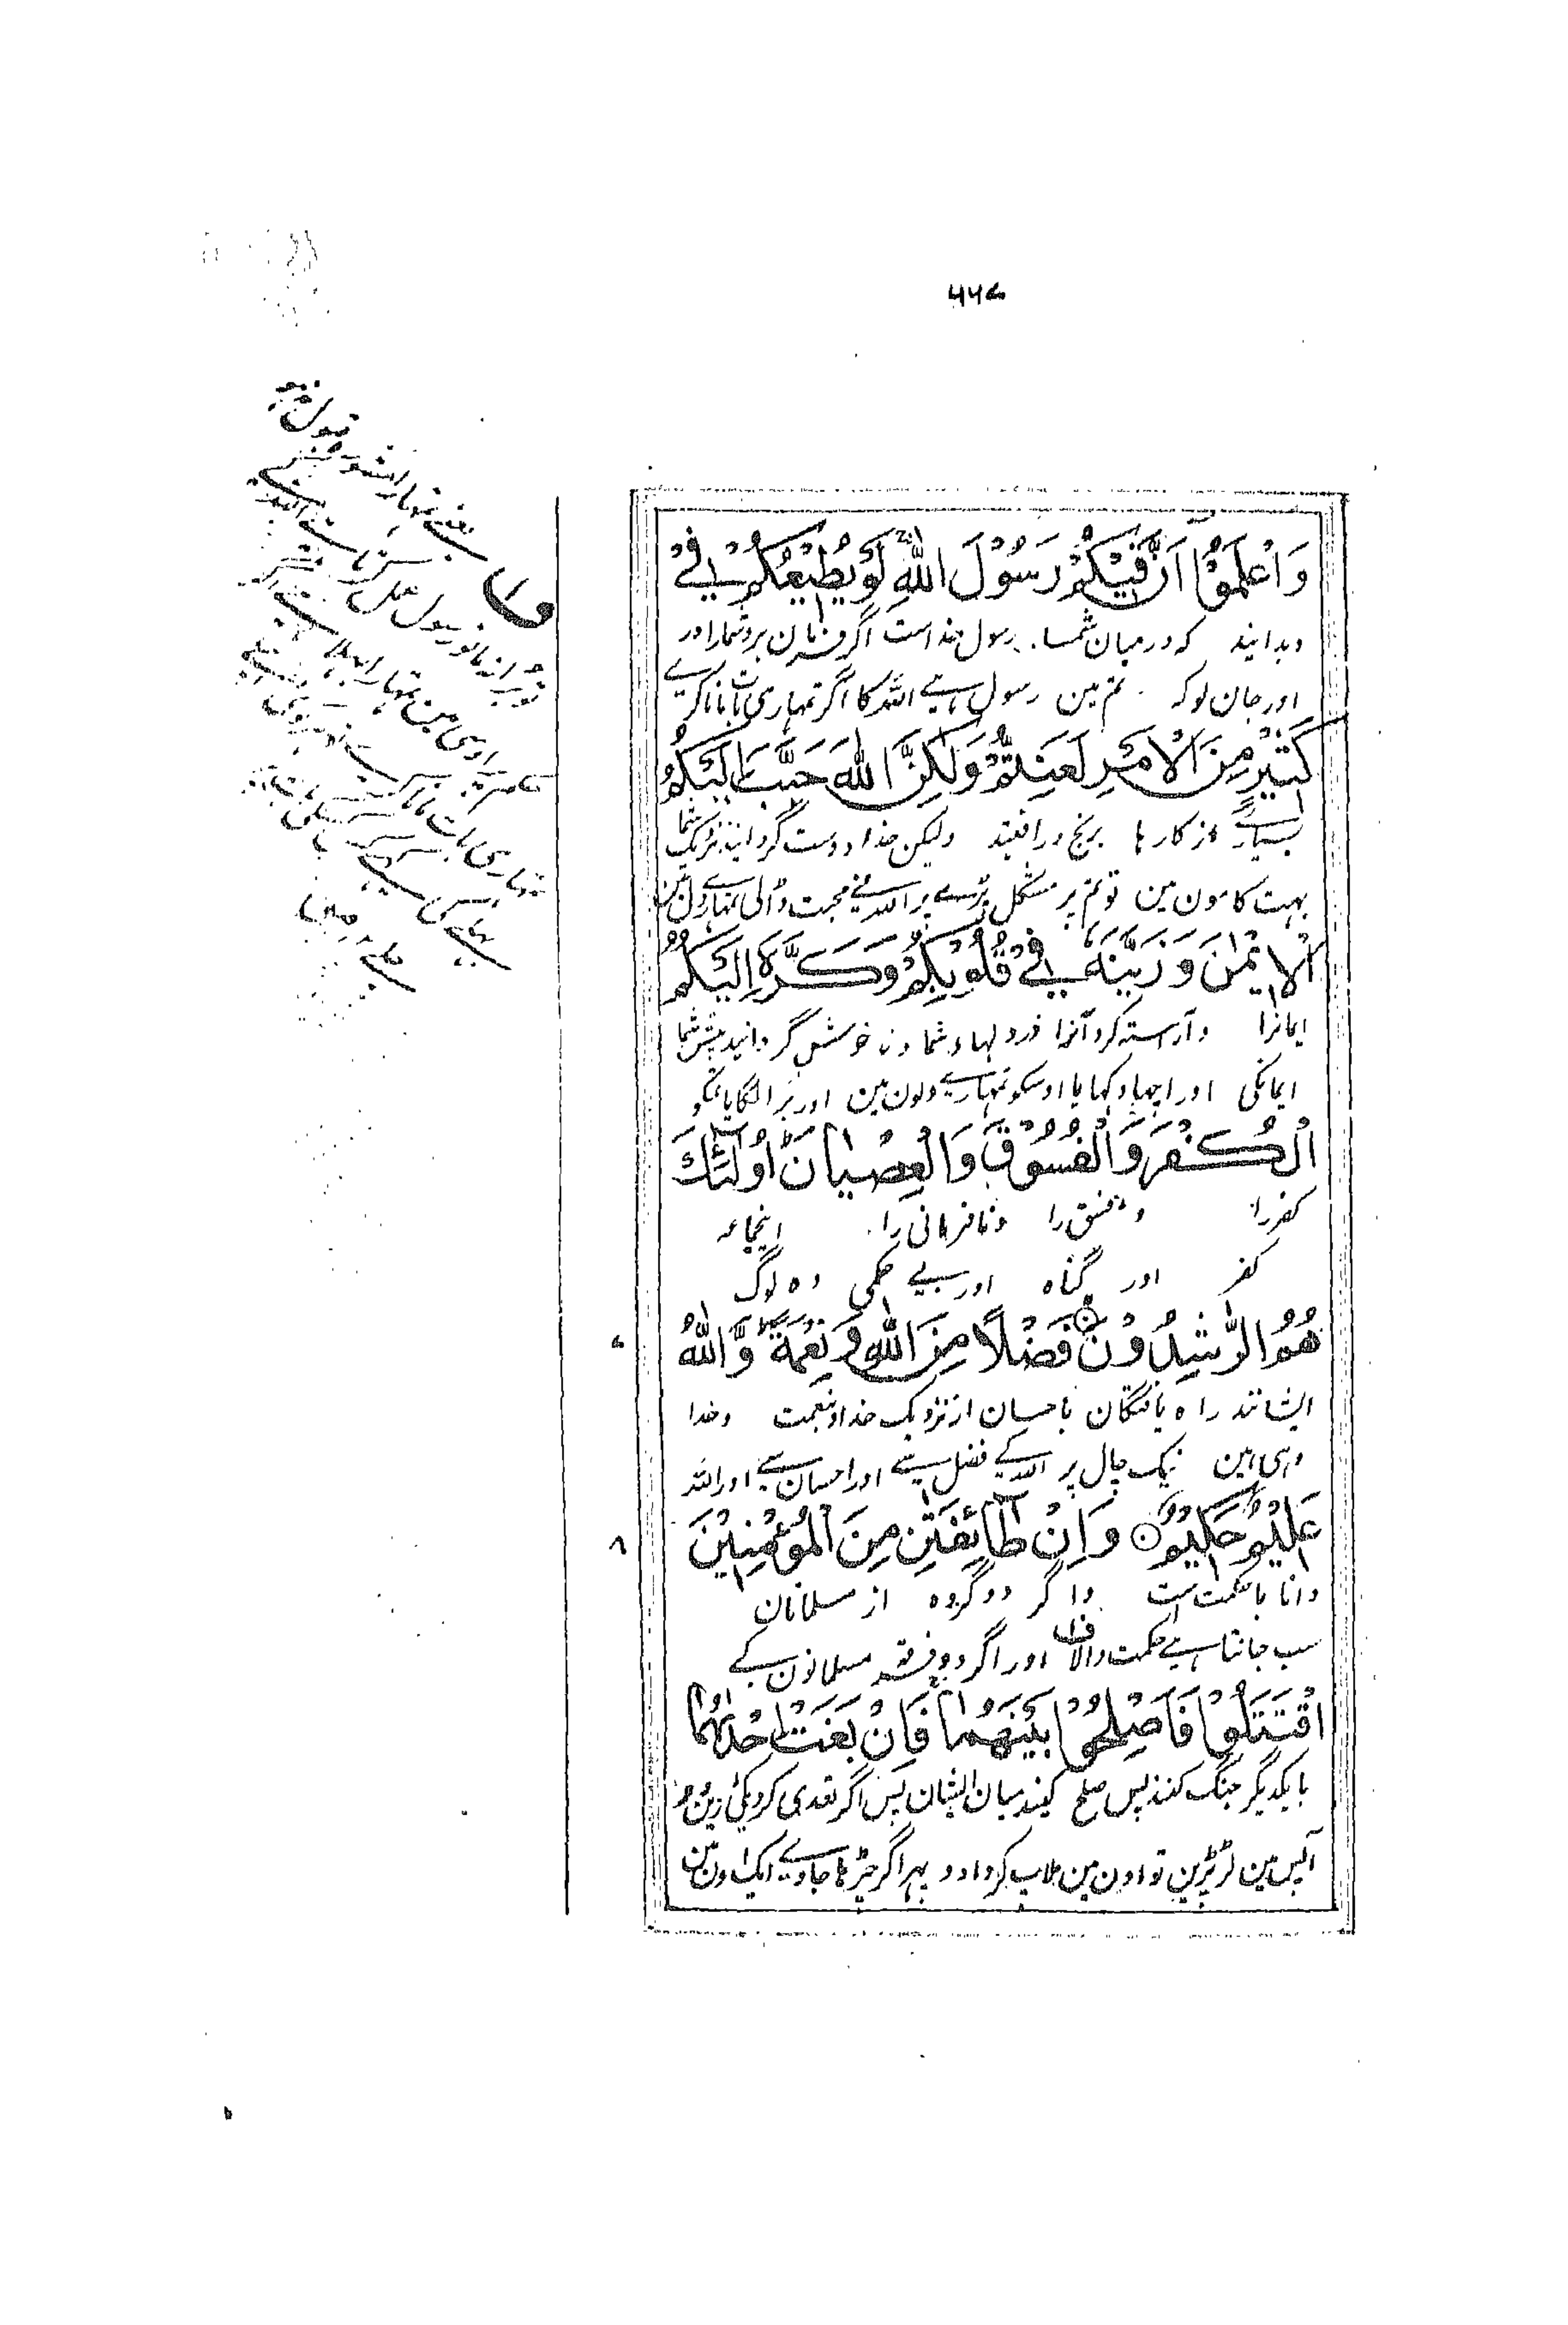 ۶۶۷
وَاعْلَمُوْٓا اَنَّ فِيْكُمْ رَسُوْلَ اللّٰهِ لَوْ يُطِيْعُكُمْ فِيْ
وبدانید که درمیان شما رسول خداست اگر فرمان برد شمارا در
اور جان لو که تم مین رسول ہے اللہ کا اگر تمہاری بات مانا کرے
كَثِيْرٍ مِّنَ الْاَمْرِ لَعَنِتُّمْ وَلٰكِنَّ اللّٰهَ حَبَّبَ اِلَيْكُمُ
بسیاری از کارها برنج درافتید ولیکن خدا دوست گردانید نزدیک شما
بہت کامون مین تو تم پر مشکل پڑے پر اللہ نے محبت ڈالی تمہارے دل مین
الْاِيْمَانَ وَزَيَّنَهٗ فِيْ قُلُوْبِكُمْ وَكَرَّهَ اِلَيْكُمُ
ایمانرا وآراسته کرد آنرا در دلهاء شما و نا خوش گردانید پیش شما
ایمانکی اور اچہا دکہایا اوسکو تمہارے دلون مین اور برا لگایا تمکو
الْكُفْرَ وَالْفُسُوْقَ وَالْعِصْيَانَ ۭ اُولٰۗىِٕكَ
کفررا و فسق را ونافرمانی را اینجماعه
کفر اور گناه اور بے حکمی وه لوگ
هُمُ الرّٰشِدُوْنَ ۝ فَضْلًا مِّنَ اللّٰهِ وَنِعْمَةً ۭ وَاللّٰهُ
۷
ایشانند راه یافتگان باحسان از نزدیک خدا ونعمت وخدا
وہی ہین نیک چال پر اللہ کے فضل سے اور احسان سے اور اللہ
عَلِيْمٌ حَكِيْمٌ ۝ وَاِنْ طَاۗىِٕفَتٰنِ مِنَ الْمُؤْمِنِيْنَ
۸
دانا باحکمت است واگر دو گروه از مسلمانان
سب جانتا ہے حکمت والا ف اور اگر دو فرقے مسلمانون کے
اقْتَتَلُوْا فَاَصْلِحُوْا بَيْنَهُمَا ۚ فَاِنْ بَغَتْ اِحْدٰىهُمَا
بایکدیگر جنگ کنند پس صلح کنید میان ایشان پس اگر تعدی کرد یکی
آپس مین لڑ پڑین تو اون مین ملاپ کروا دو پہر اگر چڑہا جاوے ایک اون مین
ف۱
یعنے تمہارا مشوره قبول نہو
تو برا نہ مانو رسول عمل کرتا ہے اللہ کے
حکم پر اوسی مین تمہارا بہلا ہے اگر
تمہاری بات مانا کرے